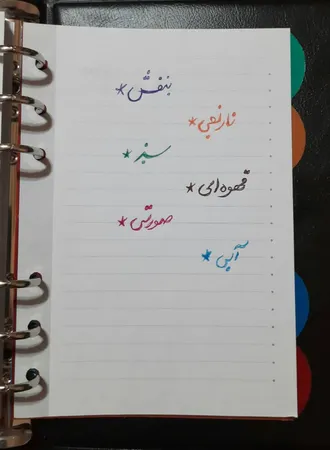 بنفش*
نارنجی*
سبز*
قهوه‌ای*
صورتی*
آبی*